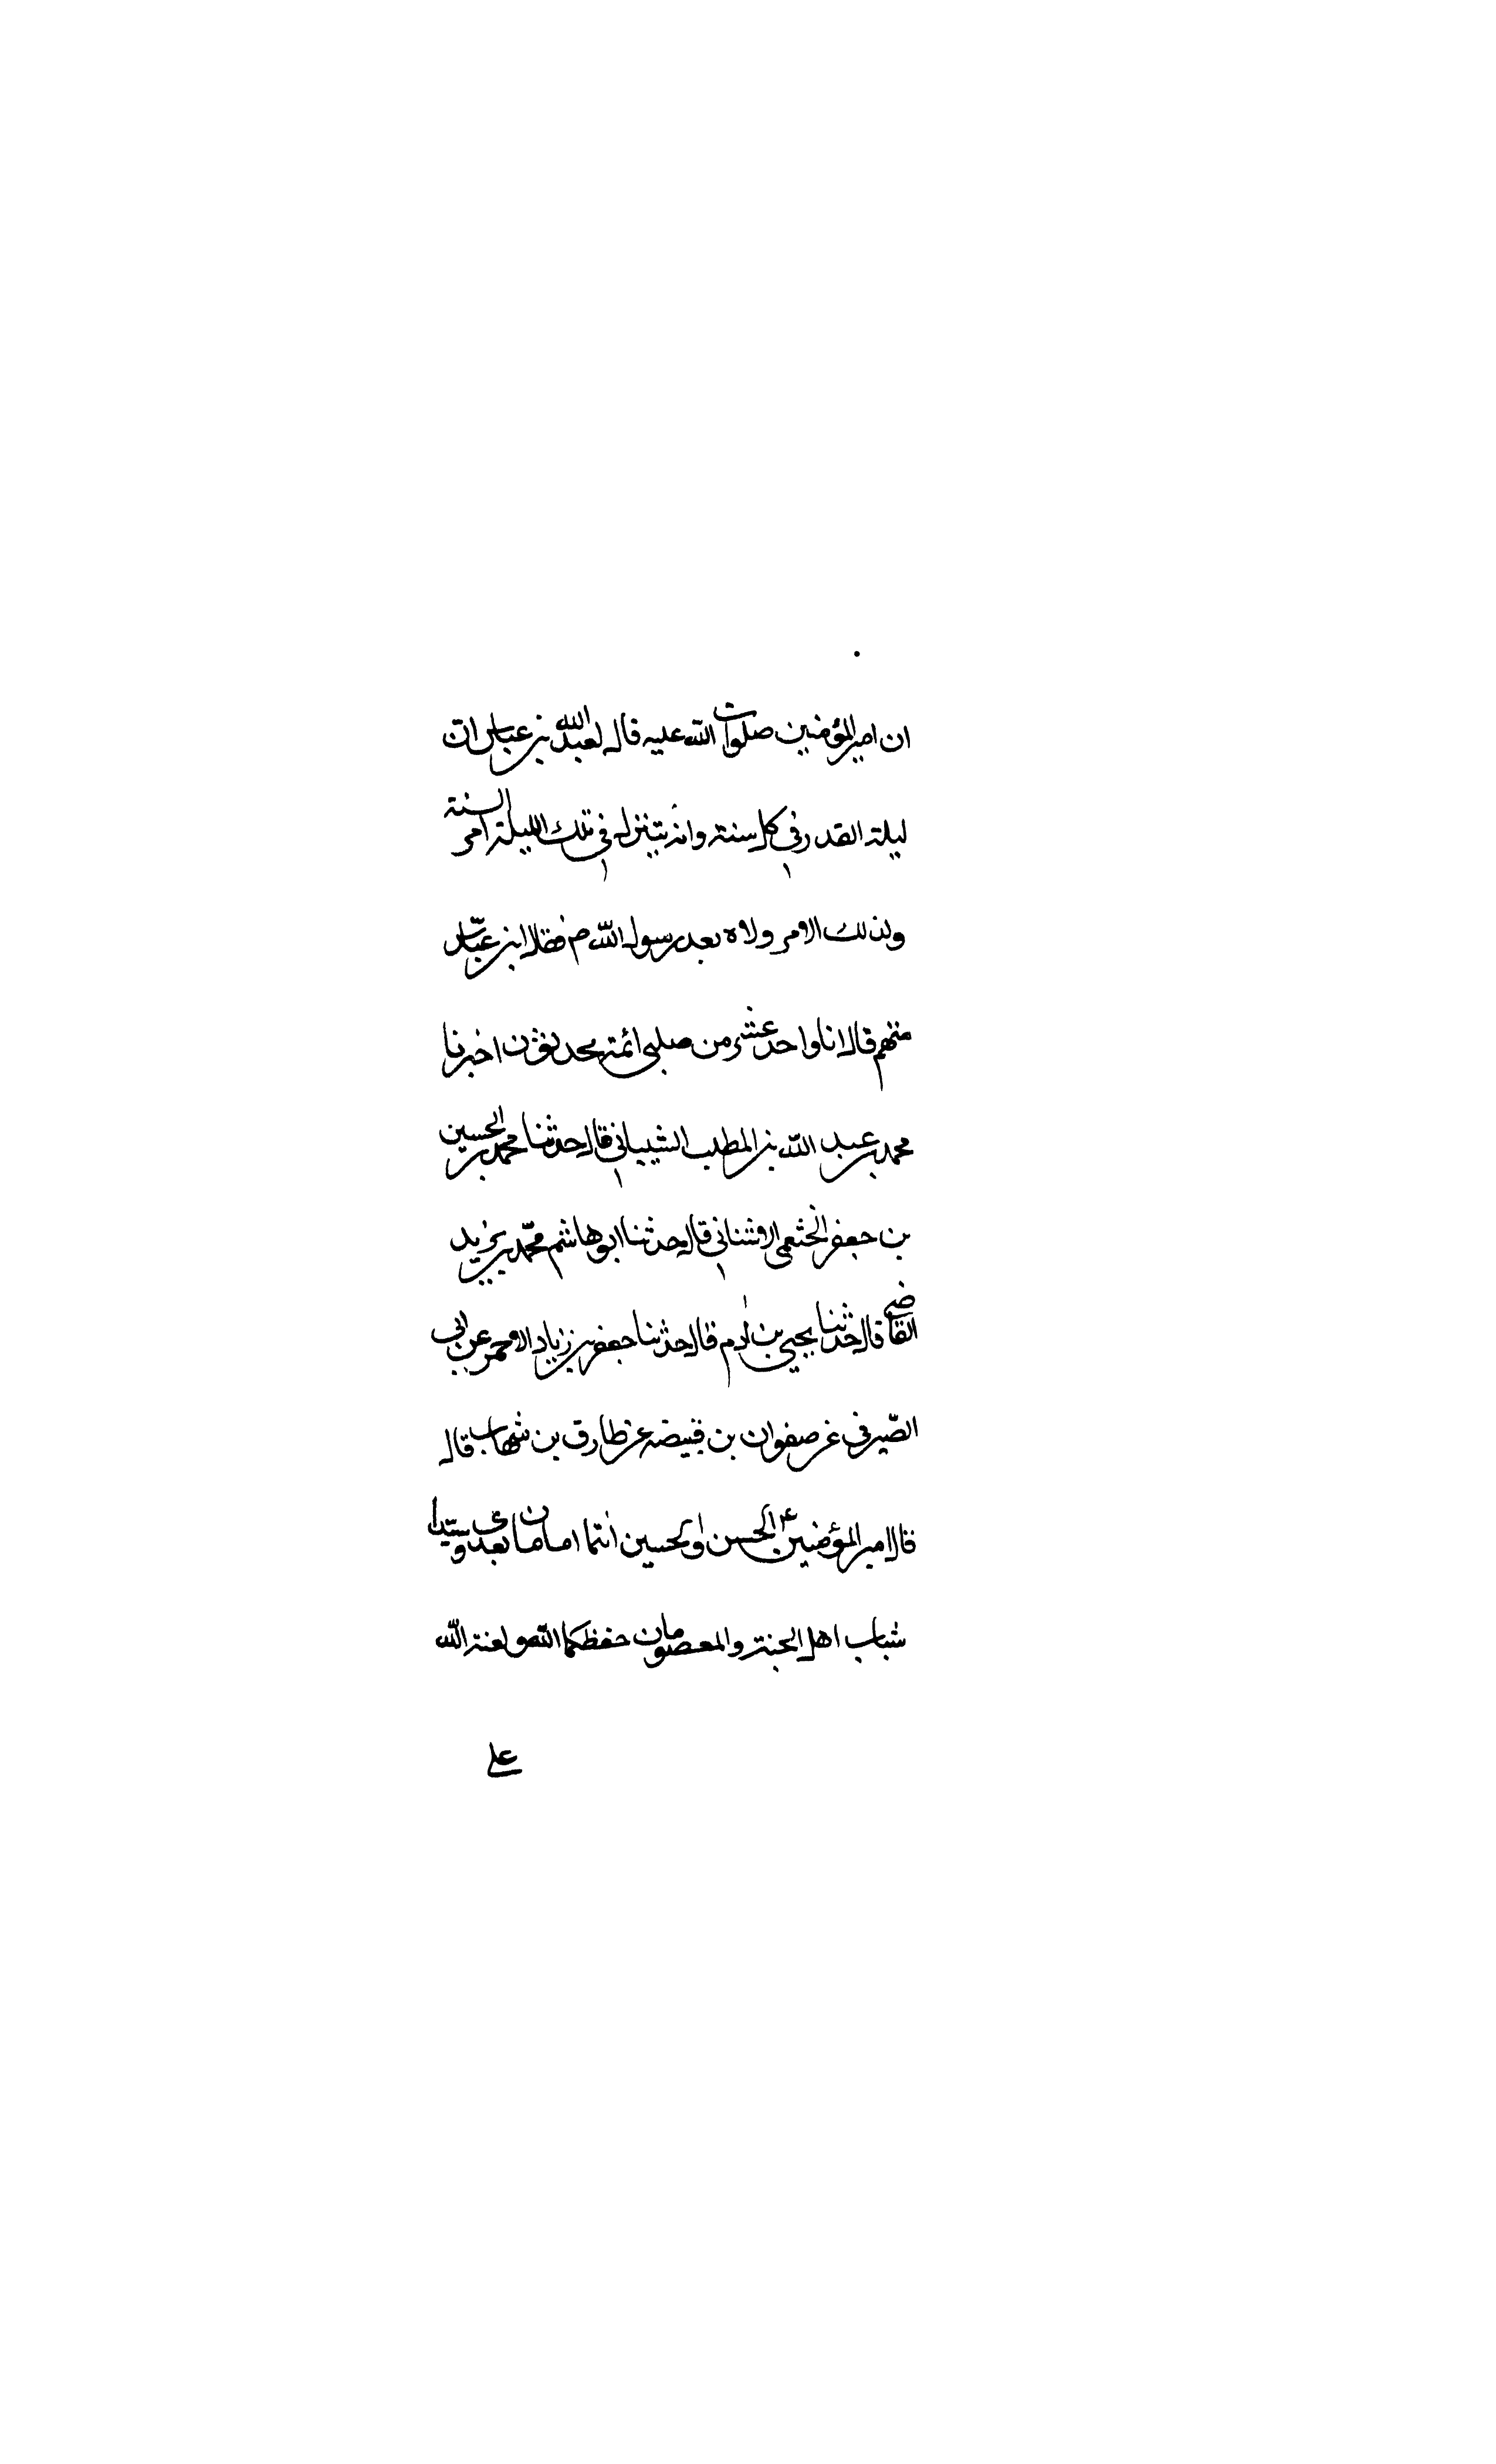 ان امير المؤمنين صلوات الله عليه قال لعبد الله بن عباس ان
ليلة القدر في كل سنة وانه يتنزل في تلك الليلة امر السنة
ولذلك الامر ولاة بعد رسول الله ص فقال ابن عبّاس
منهم قال انا واحد عشر من صلبي ائمة محدثون اخبرنا
محمد بن عبد الله بن المطلب الشيباني قال حدثنا محمد بن الحسين
بن جعفر الخثعمي الاشناني قال حدثنا ابو هاشم محمّد بن يزيد
القاضي قال حدثنا يحيى بن ادم قال حدثنا جعفر بن زياد الاحمر عن ابي
الصّيرفي عن صفوان بن قبيصة عن طارق بن شهاب قال
قال امير المؤمنين ع للحسن والحسين انتما امامان بعدي وسيّدا
شباب اهل الجنة والمعصومان حفظكما الله ولعنة الله
على